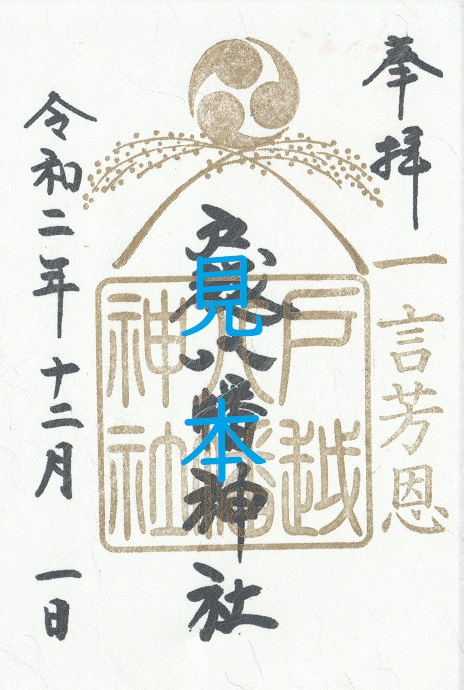 奉拝
一言芳恩
戸越八幡神社
戸越
八幡
神社
見本
令和二年十二月一日